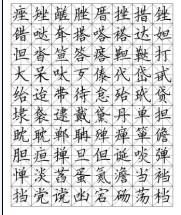 痤 矬 鹾 脞 厝 挫 措 锉
错 哒 耷 搭 嗒 褡 达 妲
怛 沓 笪 答 瘩 靼 鞑 打
大 呆 呔 歹 傣 代 岱
给 迨 带 待 怠 殆 玳 贷
袋 逮 戴 黛 丹 单 担
眈 耽 郸 聃 殚 箪 儋
胆 疸 掸 旦 但 诞 啖 弹
惮 淡 萏 蛋 氮 澹 当 裆
挡 党 谠 凼 宕 砀 荡 档